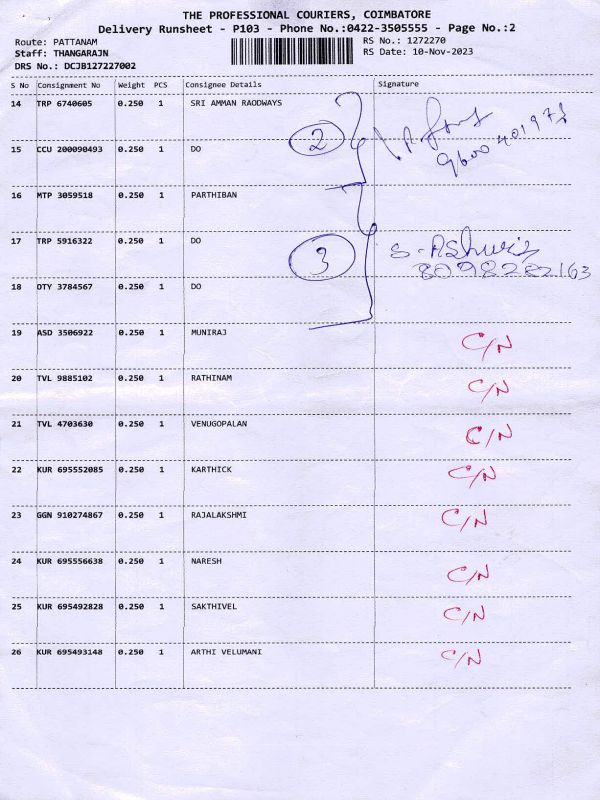 THE PROFESSIONAL COURIERS, COIMBATORE
Delivery Runsheet - P103 - Phone No.:0422-3505555 - Page No.:2
Route: PATTANAM RS No.: 1272270
Staff: THANGARAJN RS Date: 10-Nov-2023
DRS No.: DCJB127227002
S No Consignment No Weight PCS Consignee Details Signature
14 TRP 6740605 0.250 1 SRI AMMAN RAODWAYS
2
15 CCU 200090493 0.250 1 DO
16 MTP 3059518 0.250 1 PARTHIBAN
17 TRP 5916322 0.250 1 DO
3 8098282163
18 OTY 3784567 0.250 1 DO
19 ASD 3506922 0.250 1 MUNIRAJ C/N
20 TVL 9885102 0.250 1 RATHINAM C/N
21 TVL 4703630 0.250 1 VENUGOPALAN C/N
22 KUR 695552085 0.250 1 KARTHICK C/N
23 GGN 910274867 0.250 1 RAJALAKSHMI C/N
24 KUR 695556638 0.250 1 NARESH C/N
25 KUR 695492828 0.250 1 SAKTHIVEL C/N
26 KUR 695493148 0.250 1 ARTHI VELUMANI C/N